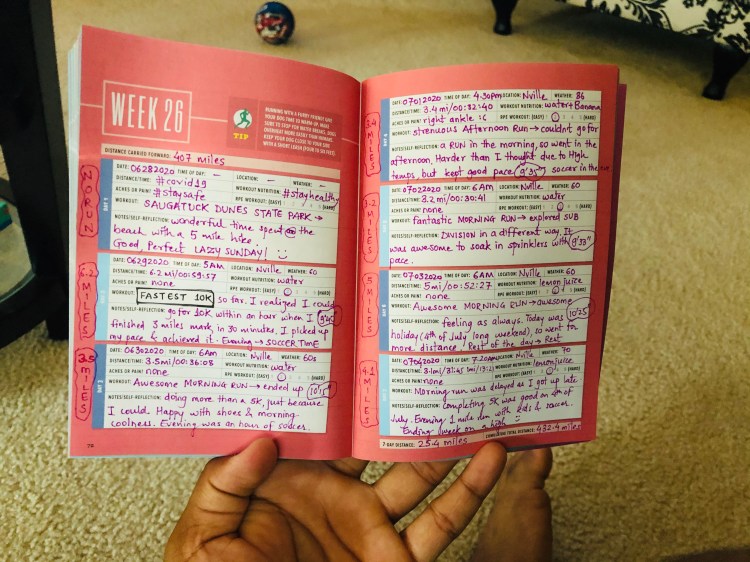 WEEK 26
TIP
RUNNING WITH A FURRY FRIEND? GIVE
YOUR DOG TIME TO WARM UP. MAKE
SURE TO STOP FOR WATER BREAKS. DOGS
OVERHEAT MORE EASILY THAN HUMANS.
KEEP YOUR DOG CLOSE TO YOUR SIDE
WITH A SHORT LEASH (FOUR TO SIX FEET).
DISTANCE CARRIED FORWARD: 407 miles
NO RUN
DAY 1
DATE: 06282020 TIME OF DAY: — LOCATION: — WEATHER: —
DISTANCE/TIME: #covid19 WORKOUT NUTRITION: #stayhealthy
ACHES OR PAIN? #staysafe RPE WORKOUT: (EASY) (HARD)
WORKOUT: SAUGATUCK DUNES STATE PARK →
NOTES/SELF-REFLECTION: wonderful time spent on the
beach with a 5 mile hike.
Good, Perfect LAZY SUNDAY!
6.2 MILES
DAY 2
DATE: 06292020 TIME OF DAY: 5AM LOCATION: Nville WEATHER: 60
DISTANCE/TIME: 6.2 mi/00:59:57 WORKOUT NUTRITION: water
ACHES OR PAIN? none RPE WORKOUT: (EASY) (HARD)
WORKOUT: FASTEST 10K so far. I realized I could
NOTES/SELF-REFLECTION: go for 10K within an hour when I 9'45"
finished 3 miles mark in 30 minutes. I picked up
my pace & achieved it. Evening → SOCCER TIME
3.5 MILES
DAY 3
DATE: 06302020 TIME OF DAY: 6am LOCATION: Nville WEATHER: 60s
DISTANCE/TIME: 3.5mi/00:36:08 WORKOUT NUTRITION: water
ACHES OR PAIN? none RPE WORKOUT: (EASY) (HARD)
WORKOUT: Awesome MORNING RUN → ended up 10'15"
NOTES/SELF-REFLECTION: doing more than a 5K, just because
I could. Happy with shoes & morning
coolness. Evening was an hour of soccer.
78
3.4 MILES
DAY 4
DATE: 07012020 TIME OF DAY: 4.30pm LOCATION: Nville WEATHER: 86
DISTANCE/TIME: 3.4 mi/00:32:40 WORKOUT NUTRITION: water+Banana
ACHES OR PAIN? right ankle RPE WORKOUT: (EASY) (HARD)
WORKOUT: strenuous Afternoon Run → couldnt go for
NOTES/SELF-REFLECTION: a RUN in the morning, so went in the
afternoon, Harder than I thought due to High
temps, but kept good pace 9'35" soccer in the eve
3.2 MILES
DAY 5
DATE: 07022020 TIME OF DAY: 6Am LOCATION: Nville WEATHER: 60
DISTANCE/TIME: 3.2 mi/00:30:41 WORKOUT NUTRITION: water
ACHES OR PAIN? none RPE WORKOUT: (EASY) (HARD)
WORKOUT: fantastic MORNING RUN → explored SUB
NOTES/SELF-REFLECTION: DIVISION in a different way. It
was awesome to soak in sprinklers with 9'33"
pace.
5 MILES
DAY 6
DATE: 07032020 TIME OF DAY: 6AM LOCATION: Nville WEATHER: 60
DISTANCE/TIME: 5mi/00:52:27 WORKOUT NUTRITION: lemon juice
ACHES OR PAIN? none RPE WORKOUT: (EASY) (HARD)
WORKOUT: Awesome MORNING RUN → awesome
NOTES/SELF-REFLECTION: feeling as always. Today was 10'25"
holiday (4th of July long weekend), so went for
more distance. Rest of the day → Rest
4.1 MILES
DAY 7
DATE: 07042020 TIME OF DAY: 7.20am LOCATION: Nville WEATHER: 70
DISTANCE/TIME: WORKOUT NUTRITION: lemon juice
ACHES OR PAIN? none RPE WORKOUT: (EASY) (HARD)
WORKOUT: Morning run was delayed as I got up late
NOTES/SELF-REFLECTION: completing 5K was good on 4th of
July. Evening 1 mile run with kids & soccer.
Ending week on a high
7-DAY DISTANCE: 25.4 miles CUMULATIVE TOTAL DISTANCE: 432.4 miles